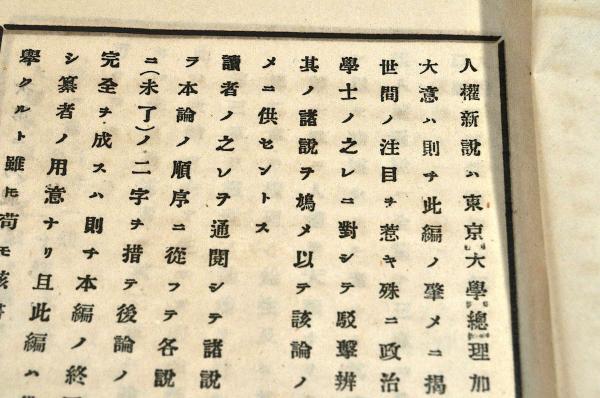 人權新說ハ東京大學總理加
大意ハ則チ此編ノ肇メニ揭
世間ノ注目ヲ惹キ殊ニ政治
學士ノ之レニ對シテ駁擊辨
其ノ諸說ヲ鳩メ以テ該論ノ
メニ供セントス
讀者ノ之レヲ通閱シテ諸說
ヲ本論ノ順序ニ從フテ各說
ニ(未了)ノ二字ヲ措テ後論ノ
完全ヲ成スハ則チ本編ノ終
シ纂者ノ用意ナリ且此編ハ
擧クルト雖モ苟モ